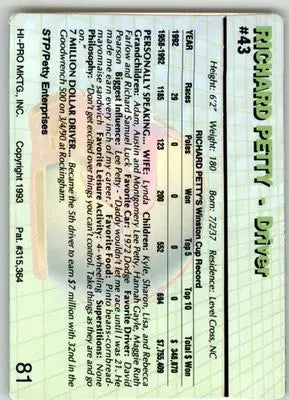 RICHARD PETTY - Driver
#43
Height: 6'2" Weight: 180 Born: 7/2/37 Residence: Level Cross, NC
RICHARD PETTY'S Winston Cup Record
YEAR Races Poles Won Top 5 Top 10 Total $ Won
1992 29 0 0 0 0 $ 348,870
1958-1992 1185 123 200 552 694 $7,755,409
PERSONALLY SPEAKING... WIFE: Lynda Children: Kyle, Sharon, Lisa, and Rebecca
Grandchildren: Adam, Austin and Montgomery Lee Petty, Hannah Gayle, Maggie Ruth
Farlow and Richard Samuel Luck Favorite Car: 1972 Dodge Favorite Driver: David
Pearson Biggest Influence: Lee Petty - "Daddy wouldn't let me race until I was 21. He
made me earn every inch of my career." Favorite Food: Pinto beans-cornbread-
mayonnaise sandwich Favorite Leisure Activity: 4- wheeling Superstitions: None
Philosophy: "Don't get excited over things you can't control. Take things as they are and go
on."
7 MILLION DOLLAR DRIVER... Became the 5th driver to earn $7 million with 32nd in the
Goodwrench 500 on 3/4/90 at Rockingham.
STP/Petty Enterprises
HI-PRO MKTG., INC. Copyright 1993 Pat. #315,364 81